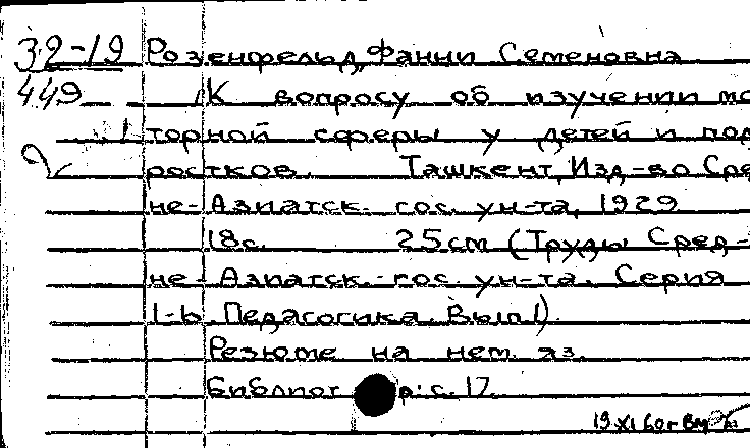 32-19 Розенфельд, Фанни Семеновна
449 К вопросу об изучении мо
торной сферы у детей и под
ростков. Ташкент, Изд-во Сре
не-Азиатск. гос. ун-та, 1929
18с. 25см (Труды Сред-
не-Азиатск.-гос. ун-та. Серия
1-b. Педагогика. Вып 1).
Резюме на нем. яз.
Библиог р: с. 17
19 XI 60г